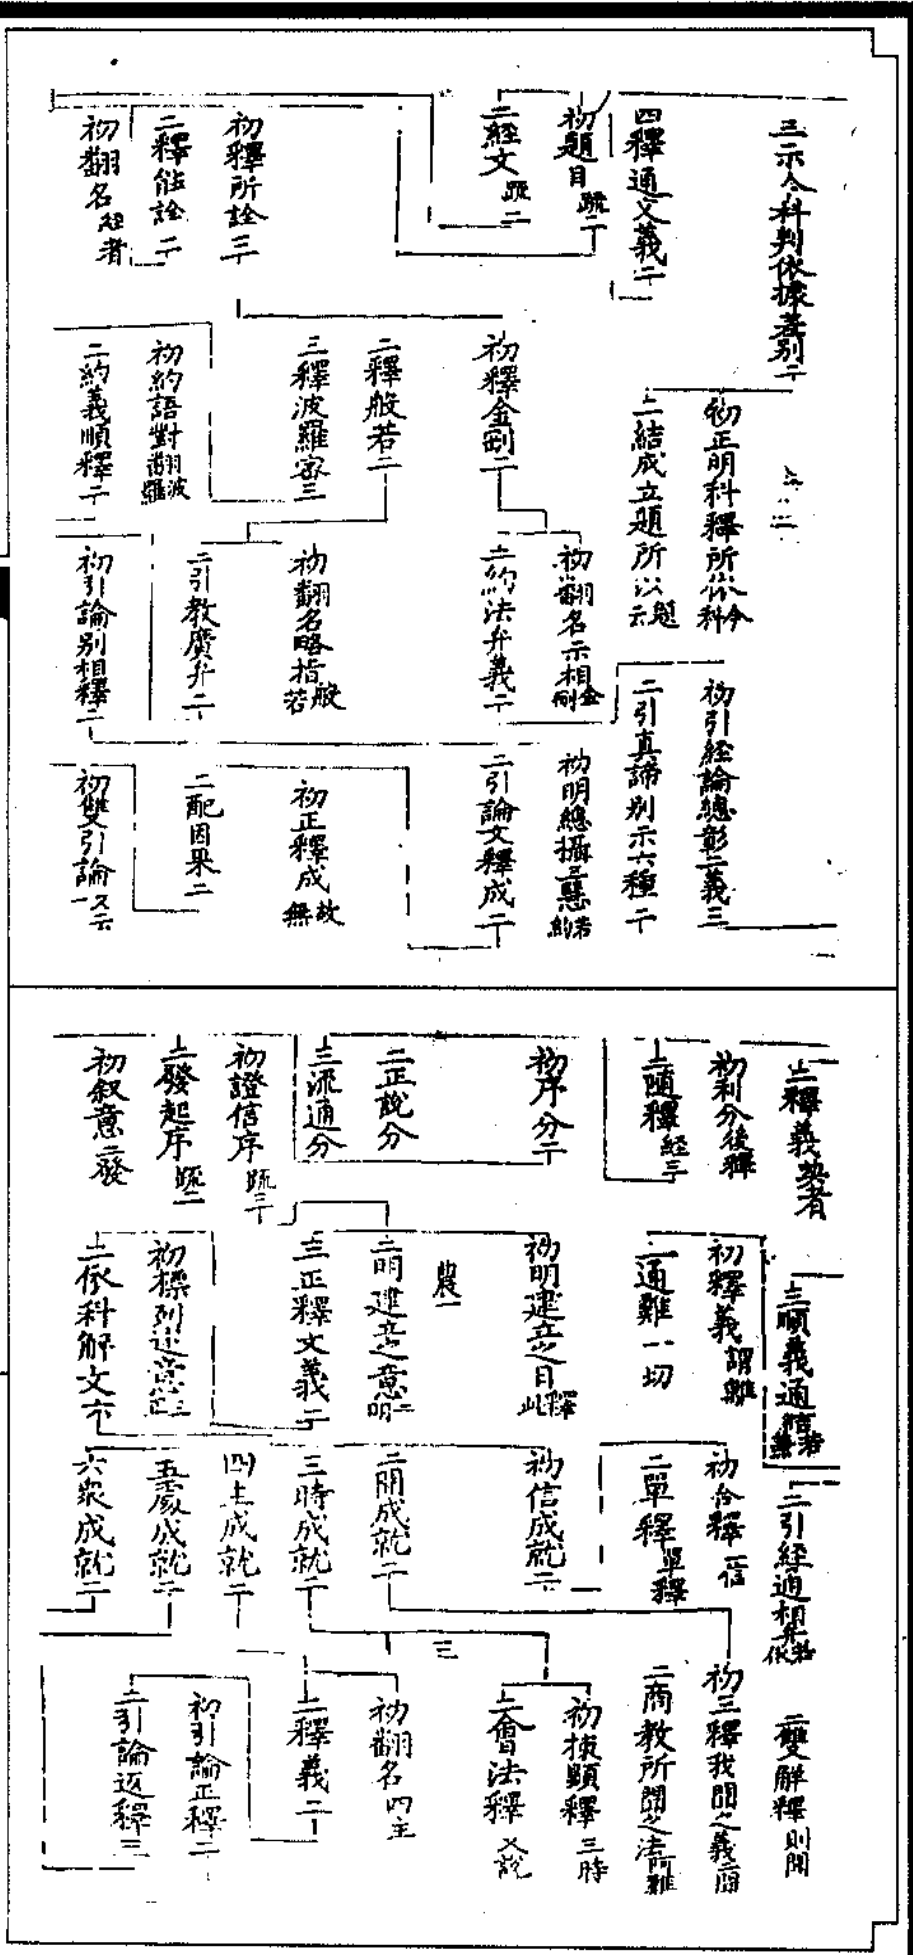 三示今科判依據差別二
四釋通文義二
初題目 疏二
二經文 疏二
初釋所詮三
二釋能詮二
初翻名 經者
初正明科釋所依 今科
二結成立題所以 題云
初釋金剛二
二釋般若二
三釋波羅密三
初約語對翻 波羅
二約義順釋二
初翻名示相 金剛
二約法弁義二
初翻名略指 般若
二引教廣弁二
初引論別相釋二
初引經論總彰二義三
二引真諦別示六種二
初明總攝三慧 若約
二引論文釋成二
初正釋成 故無
二配因果二
初雙引論 又云一
二釋義 若者
初判分後釋
二隨釋 經三
初序分二
二正說分
三流通分
初證信序 疏三
二發起序 疏二
初叙意 二發
三順義通
初釋義 謂離
二通難 一切
初明建立之目 此釋
農一
二明建立之意 二明
三正釋文義二
初標列述意 正三
二依科解文六
二引經通相弁
初合釋 一信
二單釋 單釋
初信成就二
二聞成就二
三時成就二
四主成就二
五處成就二
六衆成就二
二雙解釋 則聞
初三釋我聞之義
二商教所聞之法
三
初揀顯釋 三時
二會法釋 又說
初翻名 四主
二釋義二
初引論正釋二
二引論返釋三